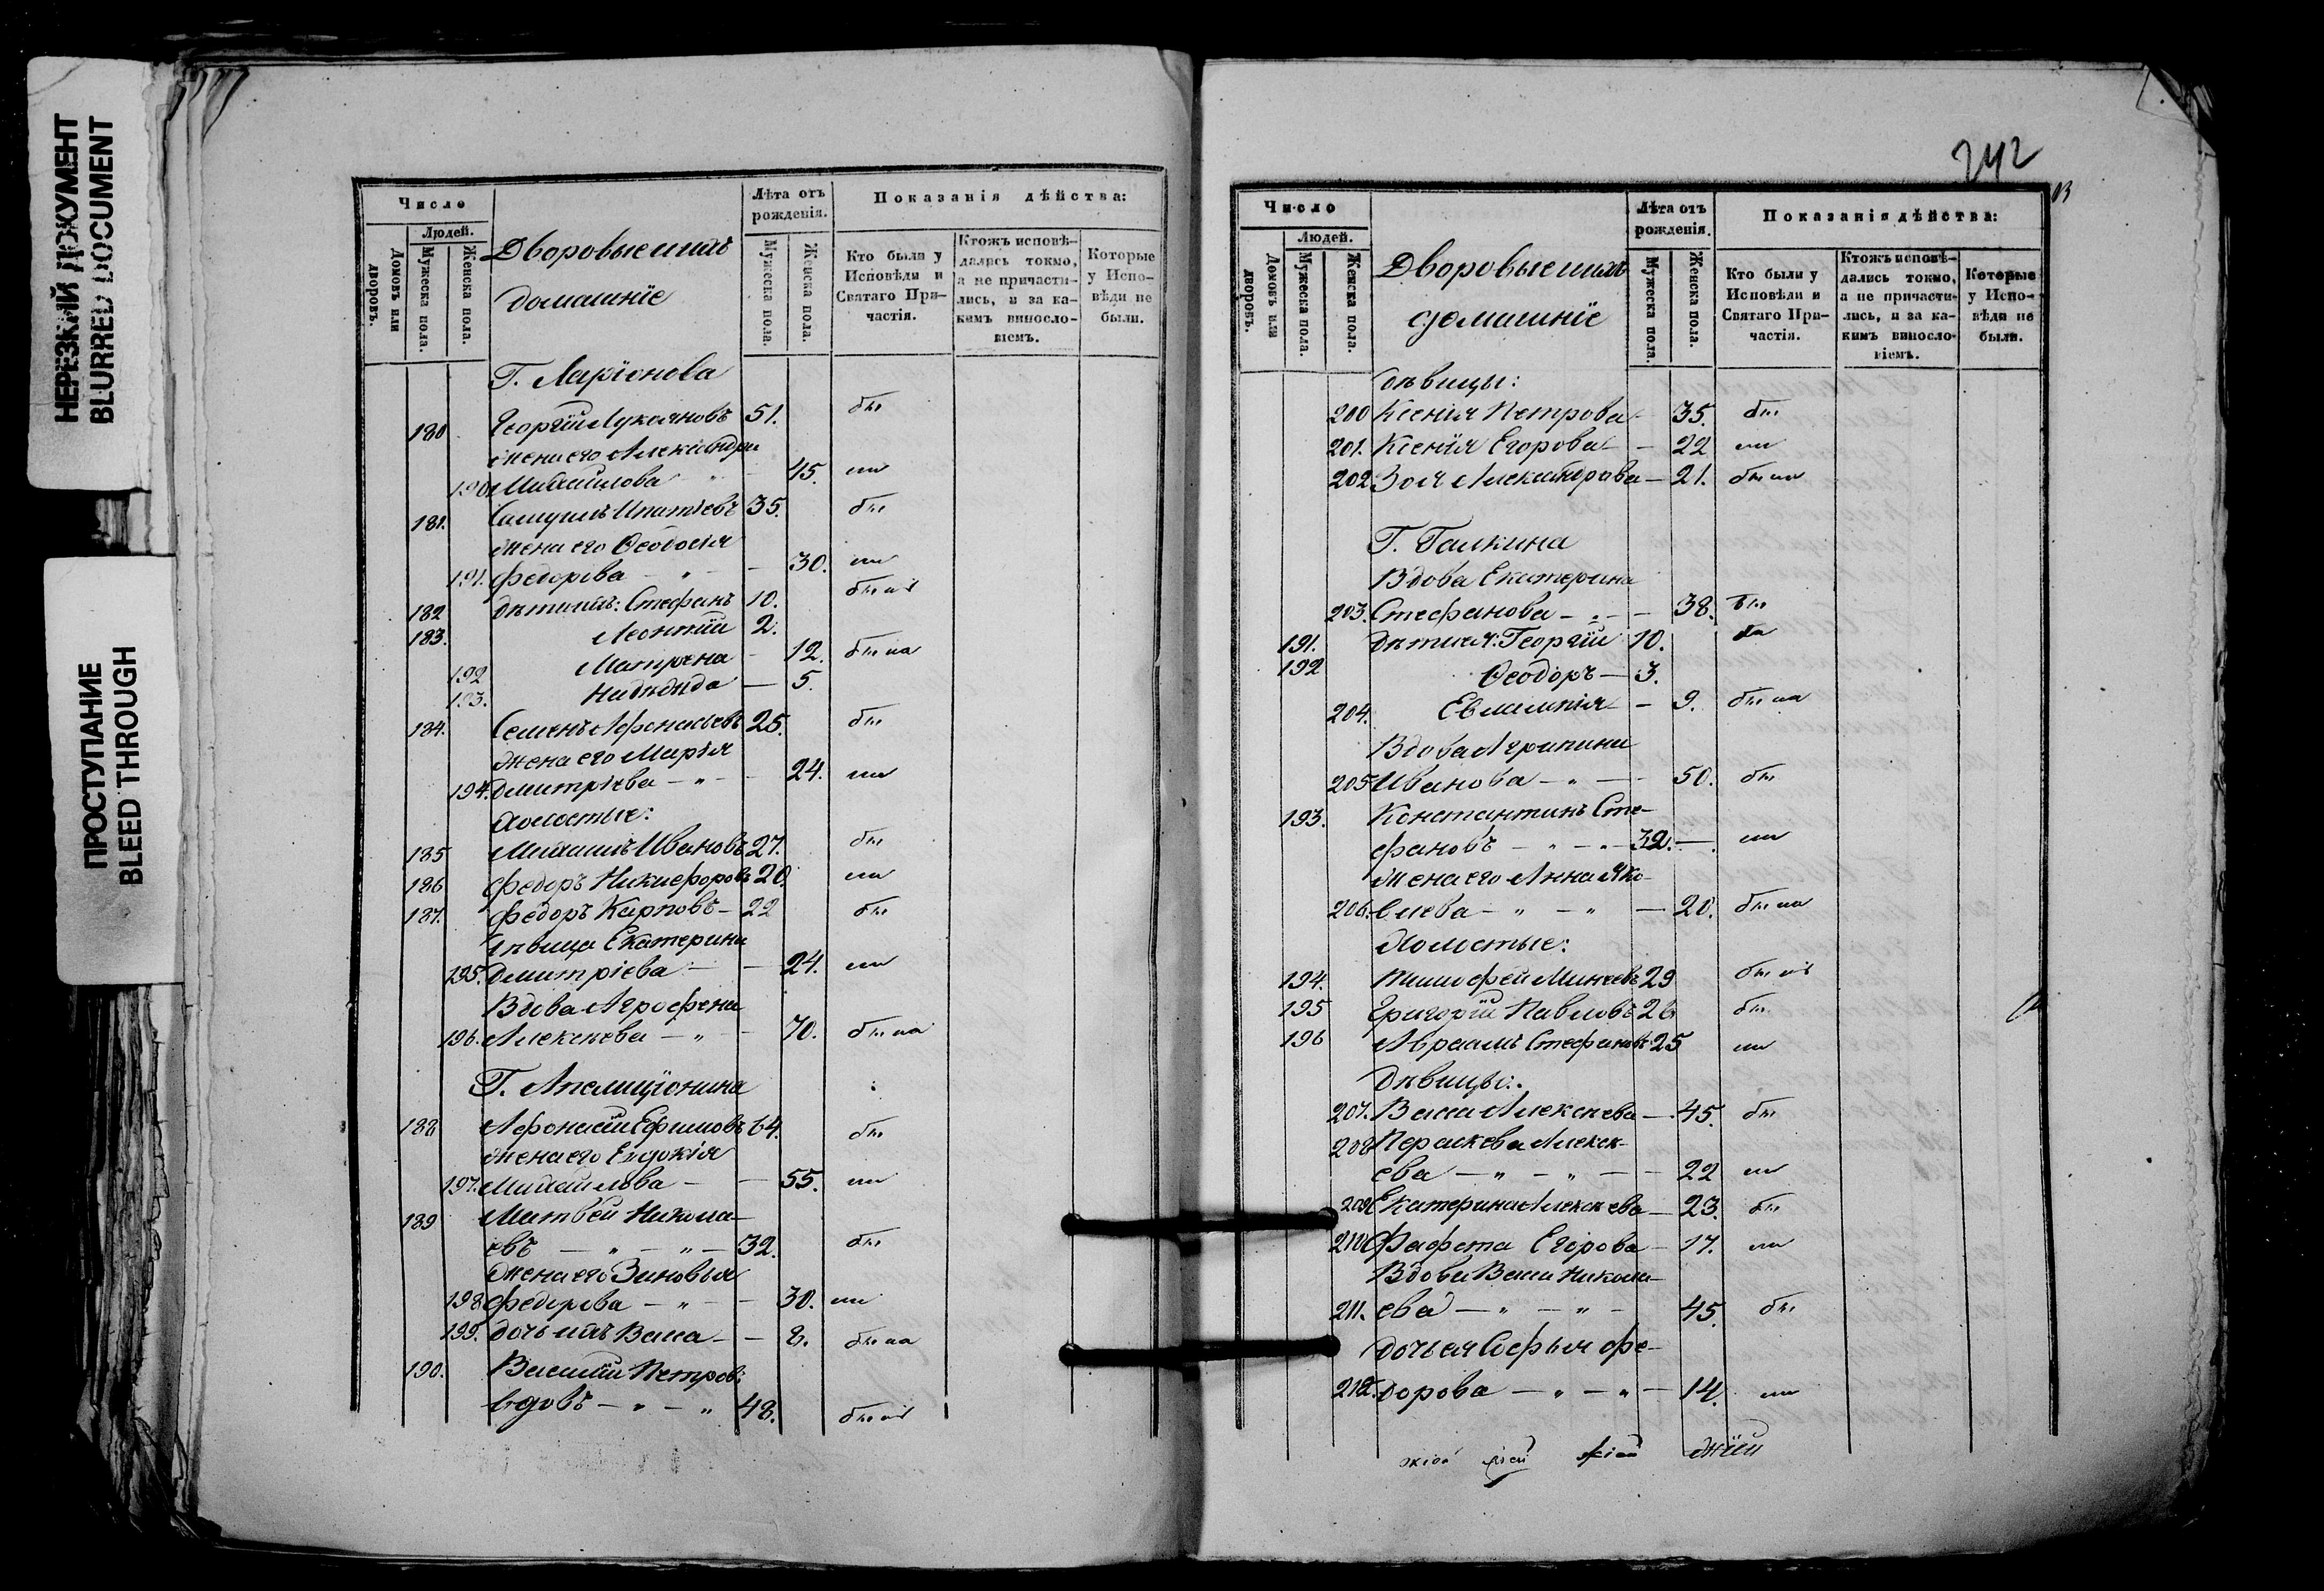 НЕРЕЗКИЙ ДОКУМЕНТ
BLURRED DOCUMENT
ПРОСТУПАНИЕ
BLEED THROUGH
Число
Людей.
Домовъ или дворовъ.
Мужеска пола.
Женска пола.
Дворовые ихъ
домашніе
Лѣта отъ рожденія.
Мужеска пола.
Женска пола.
Показанія дѣйства:
Кто были у Исповѣди и Святаго Причастія.
Ктожъ исповѣдались токмо, а не причастились, и за какимъ винословіемъ.
Которые у Исповѣди не были.
Г. Ларіонова
180 Георгій Лукяновъ 51. бы
жена его Александра
190 Михаилова 45. ли
181. Самуилъ Ипатіевъ 35. бы
жена его Ѳеодосія
191. Федорова - " - - 30. ли
182 дѣти ихъ: Стефанъ 10. были
183. Леонтій 2.
192 Матрена - 12. была
193. Надежда — 5.
184. Семенъ Афонасьевъ 25. бы
жена его Марія
194. Дмитріева - " - - 24. ли
Холостые:
185 Михаилъ Ивановъ 27. бы
186 Федоръ Никифоровъ 20. ли
187. Федоръ Карповъ - 22 бы
дѣвица Екатерина
195. Дмитріева - - 24. ли
Вдова Агрофена
196. Алексѣева - " - 70. была
Г.
188 Афонасій Ефимовъ 64. бы
жена его Евдокія
197. Михайлова - - 55. ли
189 Матвей Никола-
евъ — " - " — 32. бы
жена его Зиновья
198 Федорова - " - - 30. ли
199. дочь ихъ Васса - - 8. была
190. Василій Петровъ
вдовъ - " - " 48. былъ
242
Число
Людей.
Домовъ или дворовъ.
Мужеска пола.
Женска пола.
Дворовые ихъ
домашніе
Лѣта отъ рожденія.
Мужеска пола.
Женска пола.
Показанія дѣйства:
Кто были у Исповѣди и Святаго Причастія.
Ктожъ исповѣдались токмо, а не причастились, и за какимъ винословіемъ.
Которые у Исповѣди не были.
дѣвицы:
200 Ксенія Петрова - 35. бы
201. Ксенія Егорова - - 22 ли
202. Зоя Александрова — 21. была
Г. Галкина
Вдова Екатерина
203. Стефанова - " - - 38. бы
191. дѣти ея: Георгій 10. ли
192 Ѳеодоръ — 3.
204. Евлампія - - 9. была
Вдова Агрипина
205 Иванова - " - - 50. бы
193. Константинъ Сте-
фановъ - " - " - 32. — ли
жена его Анна Яко-
206. влева - " - " — 20. была
Холостые:
194. Тимофей Минеевъ 29 былъ
195 Григорій Павловъ 26 бы
196 Авраамъ Стефановъ 25 ли
Дѣвицы:
207. Васса Алексѣева — 45. бы
208 Параскева Алексѣ-
ева — " - " — - 22 ли
209 Екатерина Алексѣева — 23. бы
210 Егорова - 17. ли
Вдова Васса Никола-
211. ева — " - " - 45. бы
дочь ея Софья Фе-
212. дорова — " - " — 14. ли